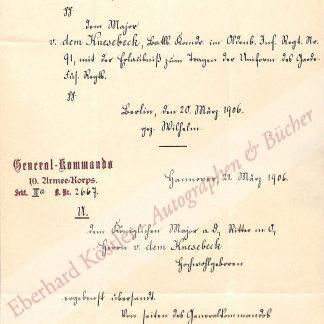 pp.
dem Major
v. dem Knesebeck, Batls. Komdr. im Oldenb. Inf. Regt. No.
91, mit der Erlaubniß zum Tragen der Uniform des Garde-
Füs. Regts.
pp.
Berlin, den 20. März 1906.
gez. Wilhelm.
General-Kommando
10. Armee-Korps.
Sekt. IIa J. Nr. 2667.
Hannover 21. März 1906.
U.
dem Königlichen Major a.D., Ritter
Herrn v. dem Knesebeck
Hochwohlgeboren
ergebenst übersandt.
Von seiten des Generalkommandos
Eberhard Köstler Autographen & Bücher